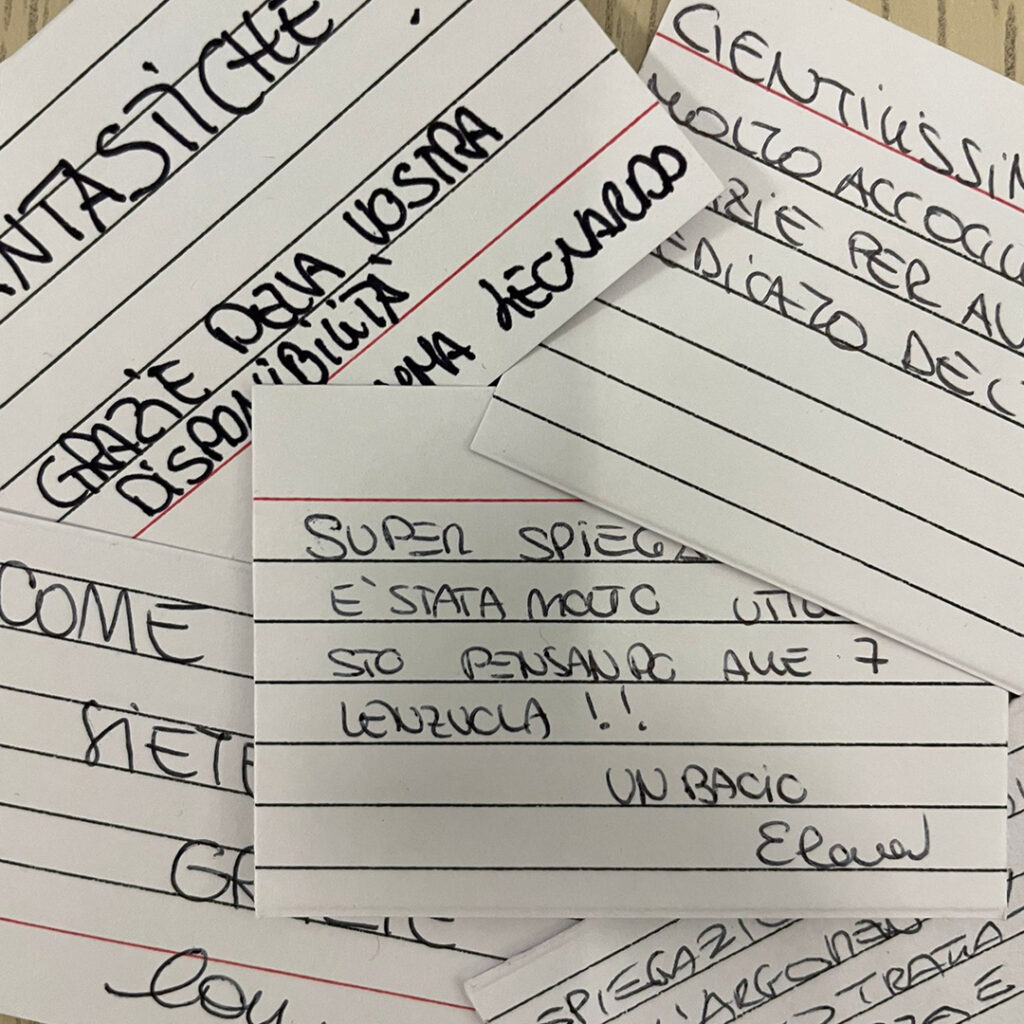 FANTASTICHE
GRAZIE DELLA VOSTRA
DISPONIBILITÀ
LEGNARDO
GENTILISSIM
MOLTO ACCOGLI
GRAZIE PER AV
DEDICATO DEL
SUPER SPIEGA
E' STATA MOLTO UTIL
STO PENSANDO ALLE 7
LENZUOLA !!
UN BACIO
Elena
COME
SIETE
GRAZIE
SPIEGAZIO
L'ARGOMEN
TRATTA
E